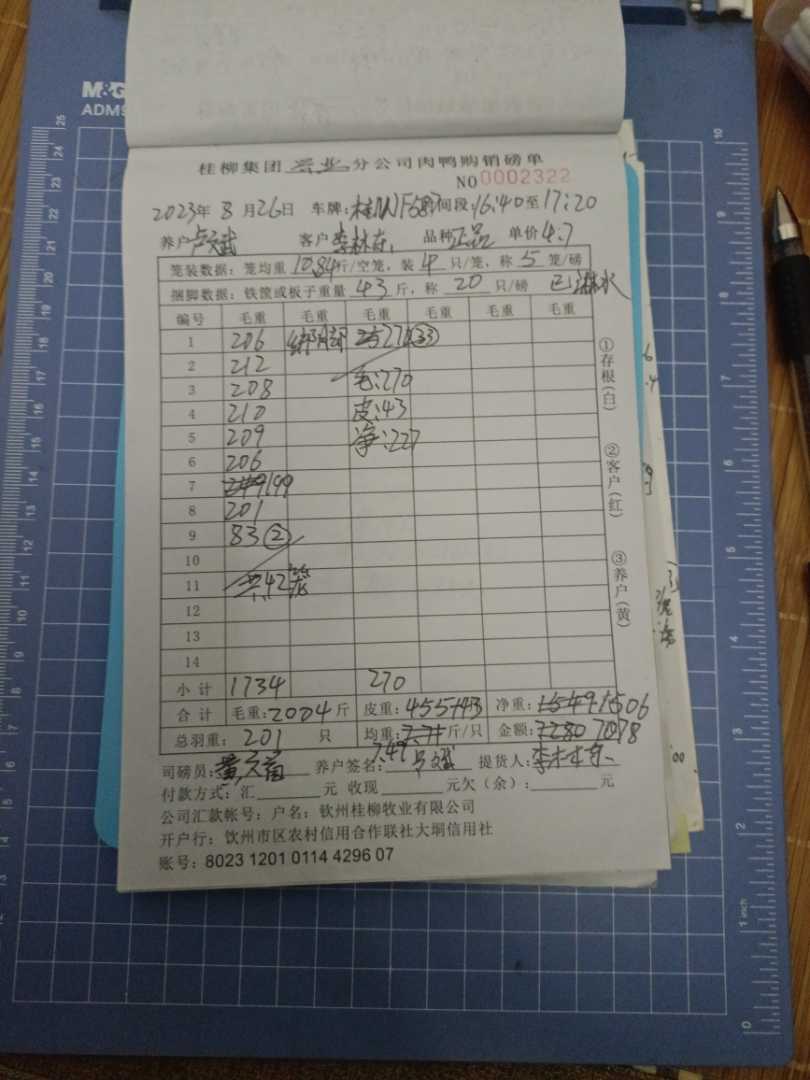 M&G
ADM9
桂柳集团 兴业 分公司肉鸭购销磅单
NO 0002322
2023年 8 月 26日 车牌: 时间段: 16:40 至 17:20
养户 客户 李林东 品种 正品 单价 4.7
笼装数据: 笼均重 10.84 斤/空笼, 装 4 只/笼, 称 5 笼/磅
捆脚数据: 铁筐或板子重量 43 斤, 称 20 只/磅 已淋水
编号 毛重 毛重 毛重 毛重 毛重 毛重
1 206 绑脚 270 33
2 212
3 208 毛:270
4 210 皮:43
5 209 净:227
6 206
7 199
8 201
9 83 ②
10
11 共42笼
12
13
14
小计 1734 270
合计 毛重: 2004 斤 皮重: 455+43 净重: 1549 1506
总羽重: 201 只 均重: 7.71 斤/只 金额: 7280 7078
7.49
司磅员: 养户签名: 提货人: 李林东
付款方式: 汇 元 收现 元欠(余): 元
公司汇款帐号: 户名: 钦州桂柳牧业有限公司
开户行: 钦州市区农村信用合作联社大垌信用社
账号: 8023 1201 0114 4296 07
①存根(白)
②客户(红)
③养户(黄)